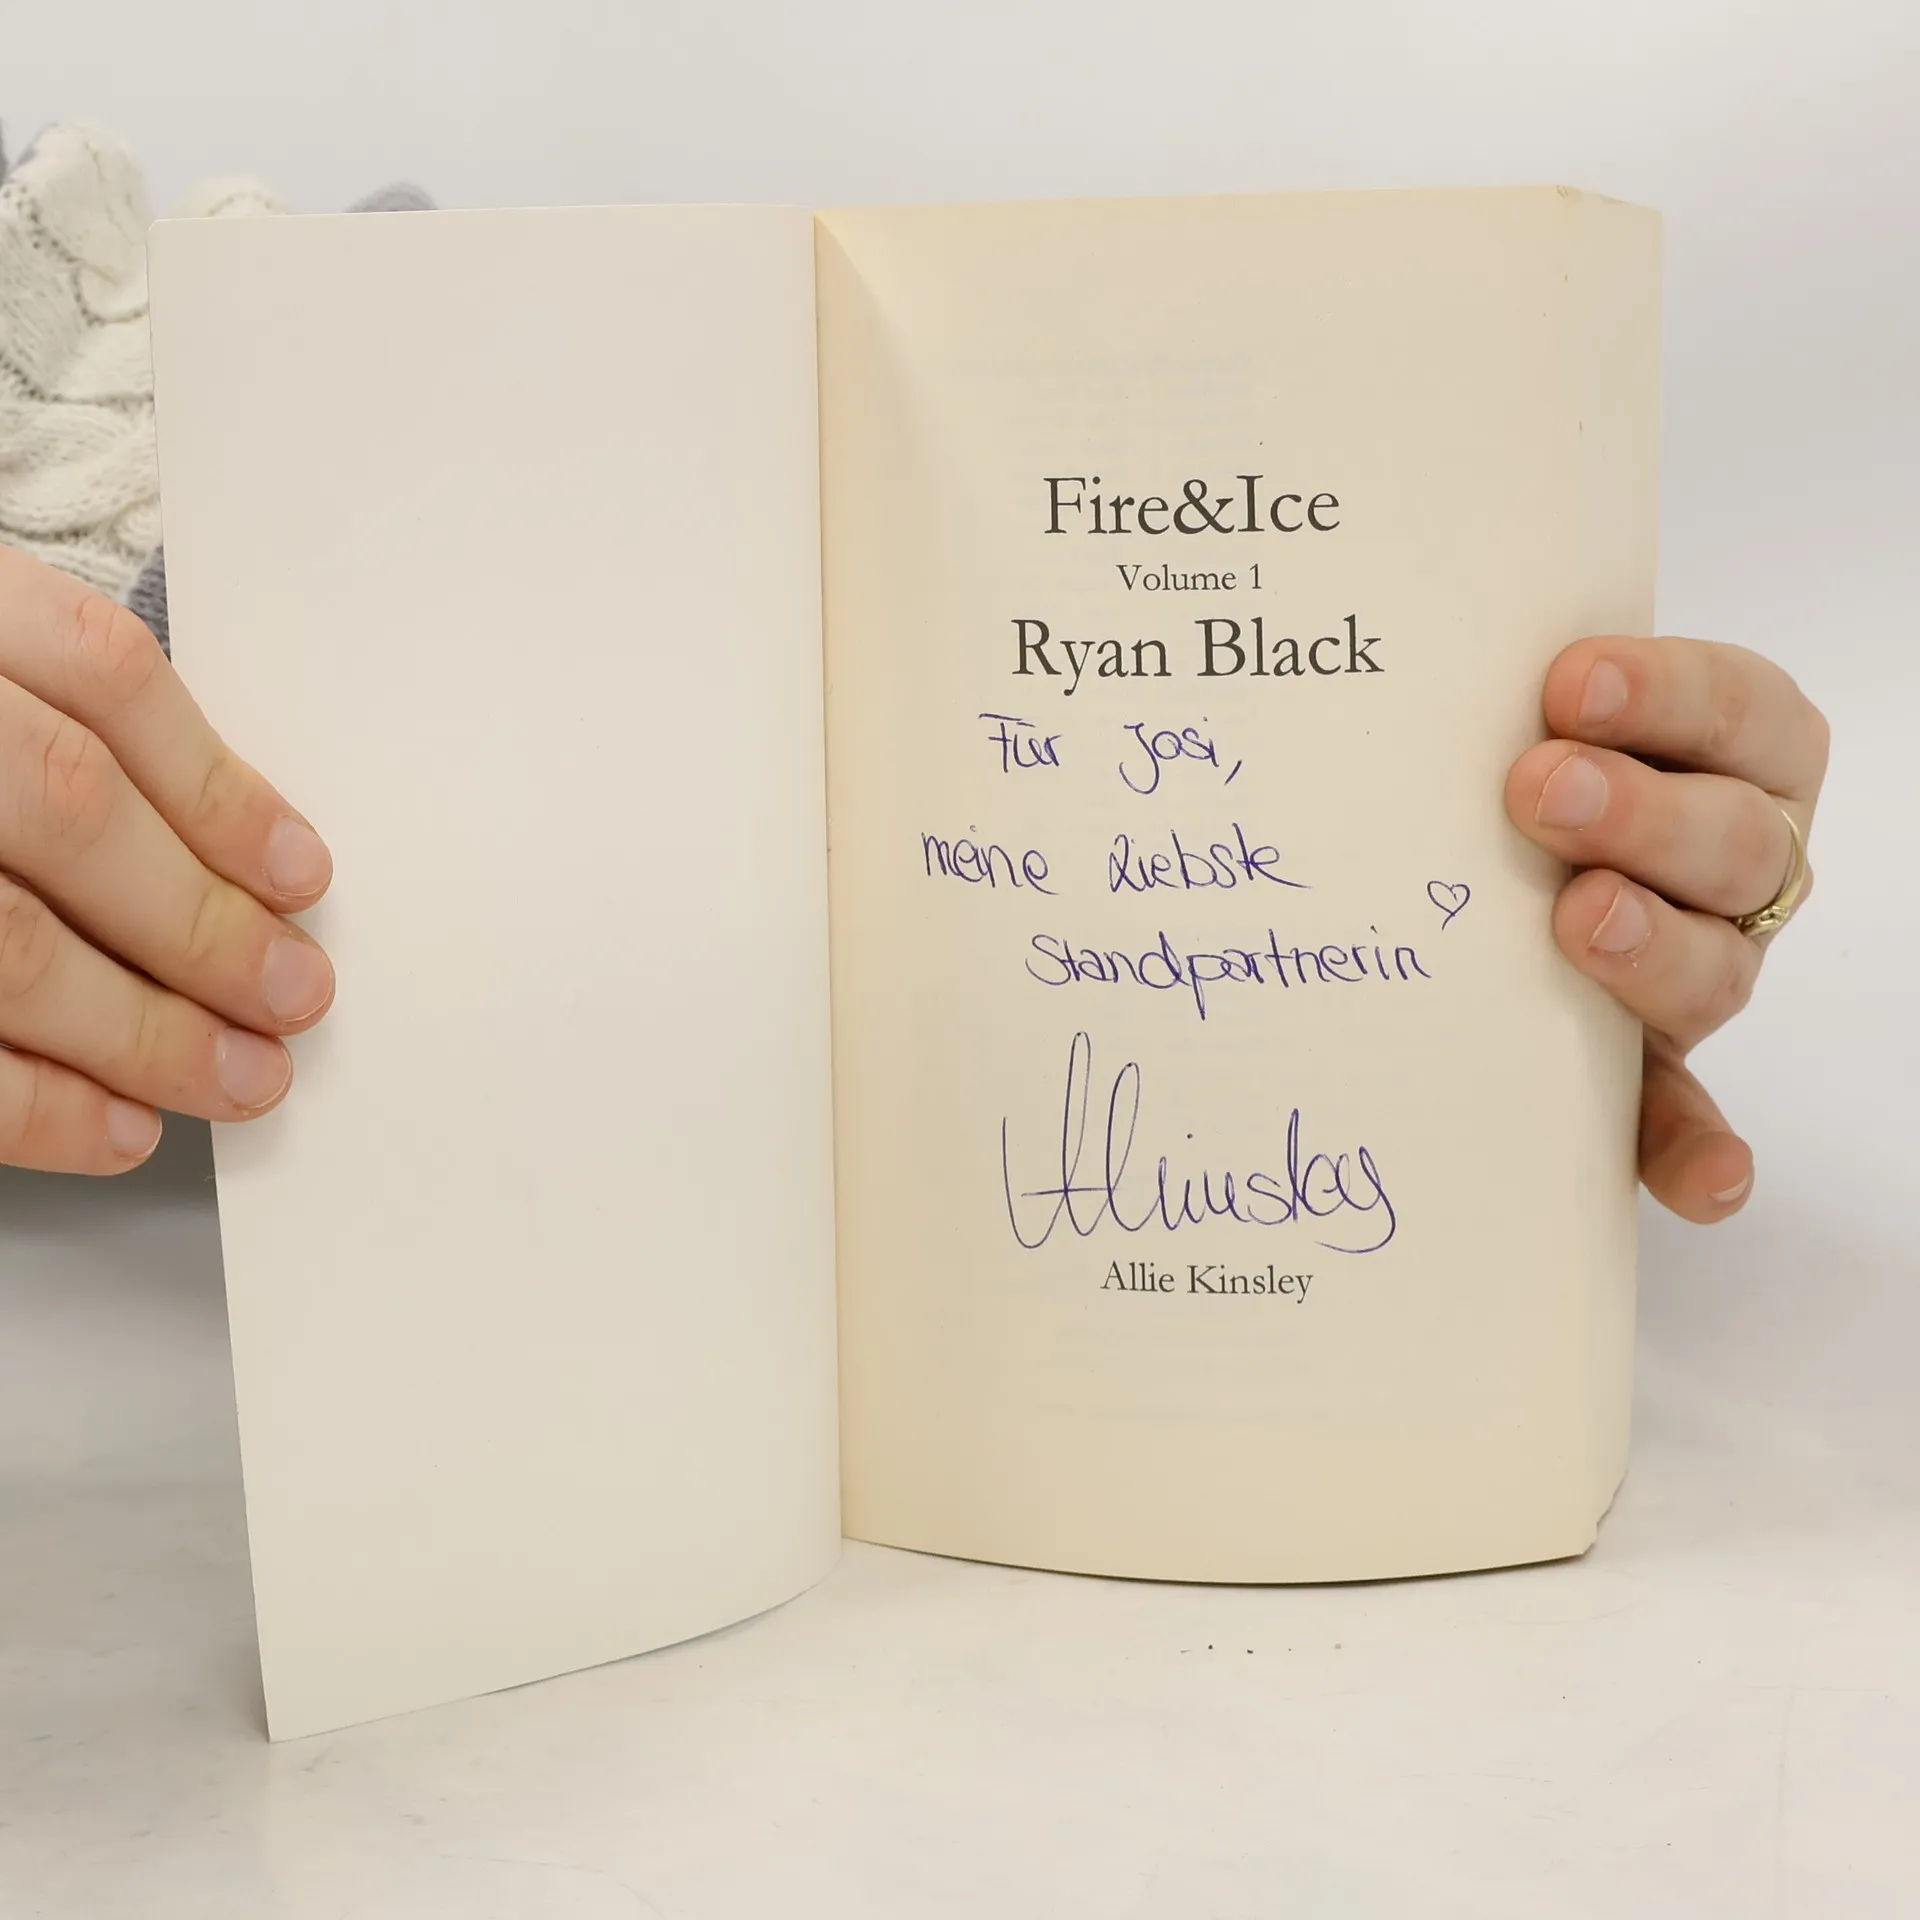 Fire&Ice
Volume 1
Ryan Black
Für Josi,
meine Liebste
Standpartnerin ♡
AKinsley
Allie Kinsley